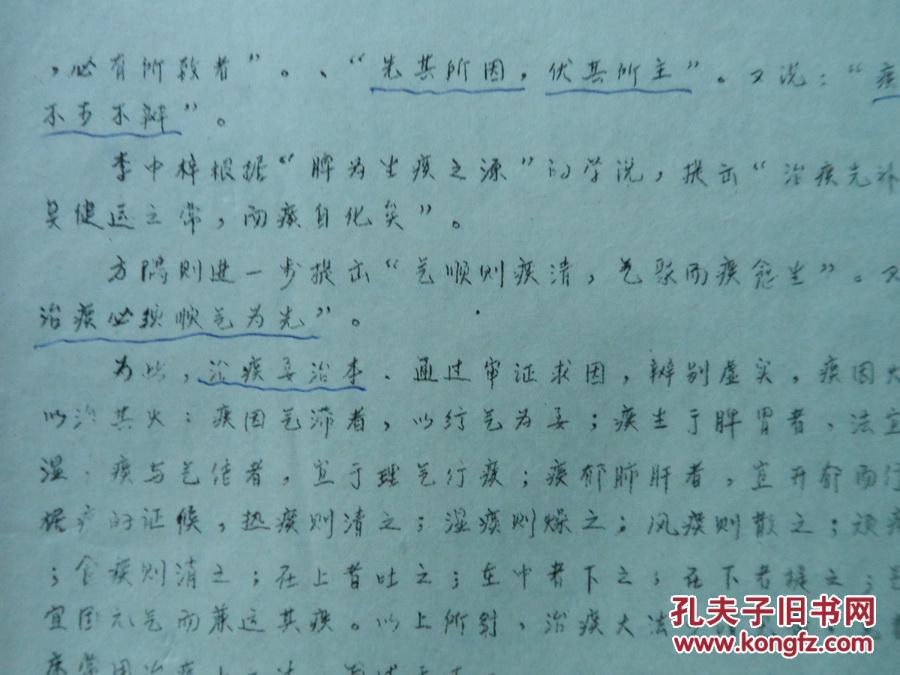 ，必有所致者”。、“先其所因，伏其所主”。又说：“痰
不可不辩”。
李中梓根据“脾为生痰之源”的学说，提出“治痰先补
复健运之常，而痰自化矣”。
方隅则进一步提出“气顺则痰清，气聚而痰愈生”。又
治痰必须顺气为先”。
为此，治痰要治本．通过审证求因，辨别虚实，痰因火
以治其火：痰因气滞者，以行气为要；痰生于脾胃者，法宜
湿．痰与气结者，宜于理气行痰；痰郁肺肝者，宜开郁而行
据痰的证候，热痰则清之；湿痰则燥之；风痰则散之；顽痰
；食痰则消之；在上者吐之；在中者下之；在下者提之；
宜固元气而兼运其痰。以上所列，治痰大法
痰常用治痰
孔夫子旧书网
www.kongfz.com